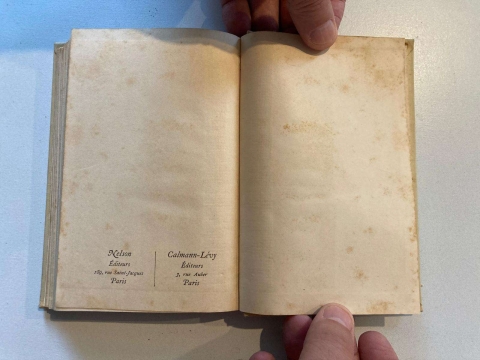 Nelson
Éditeurs
189, rue Saint-Jacques
Paris
Calmann-Lévy
Éditeurs
3, rue Auber
Paris